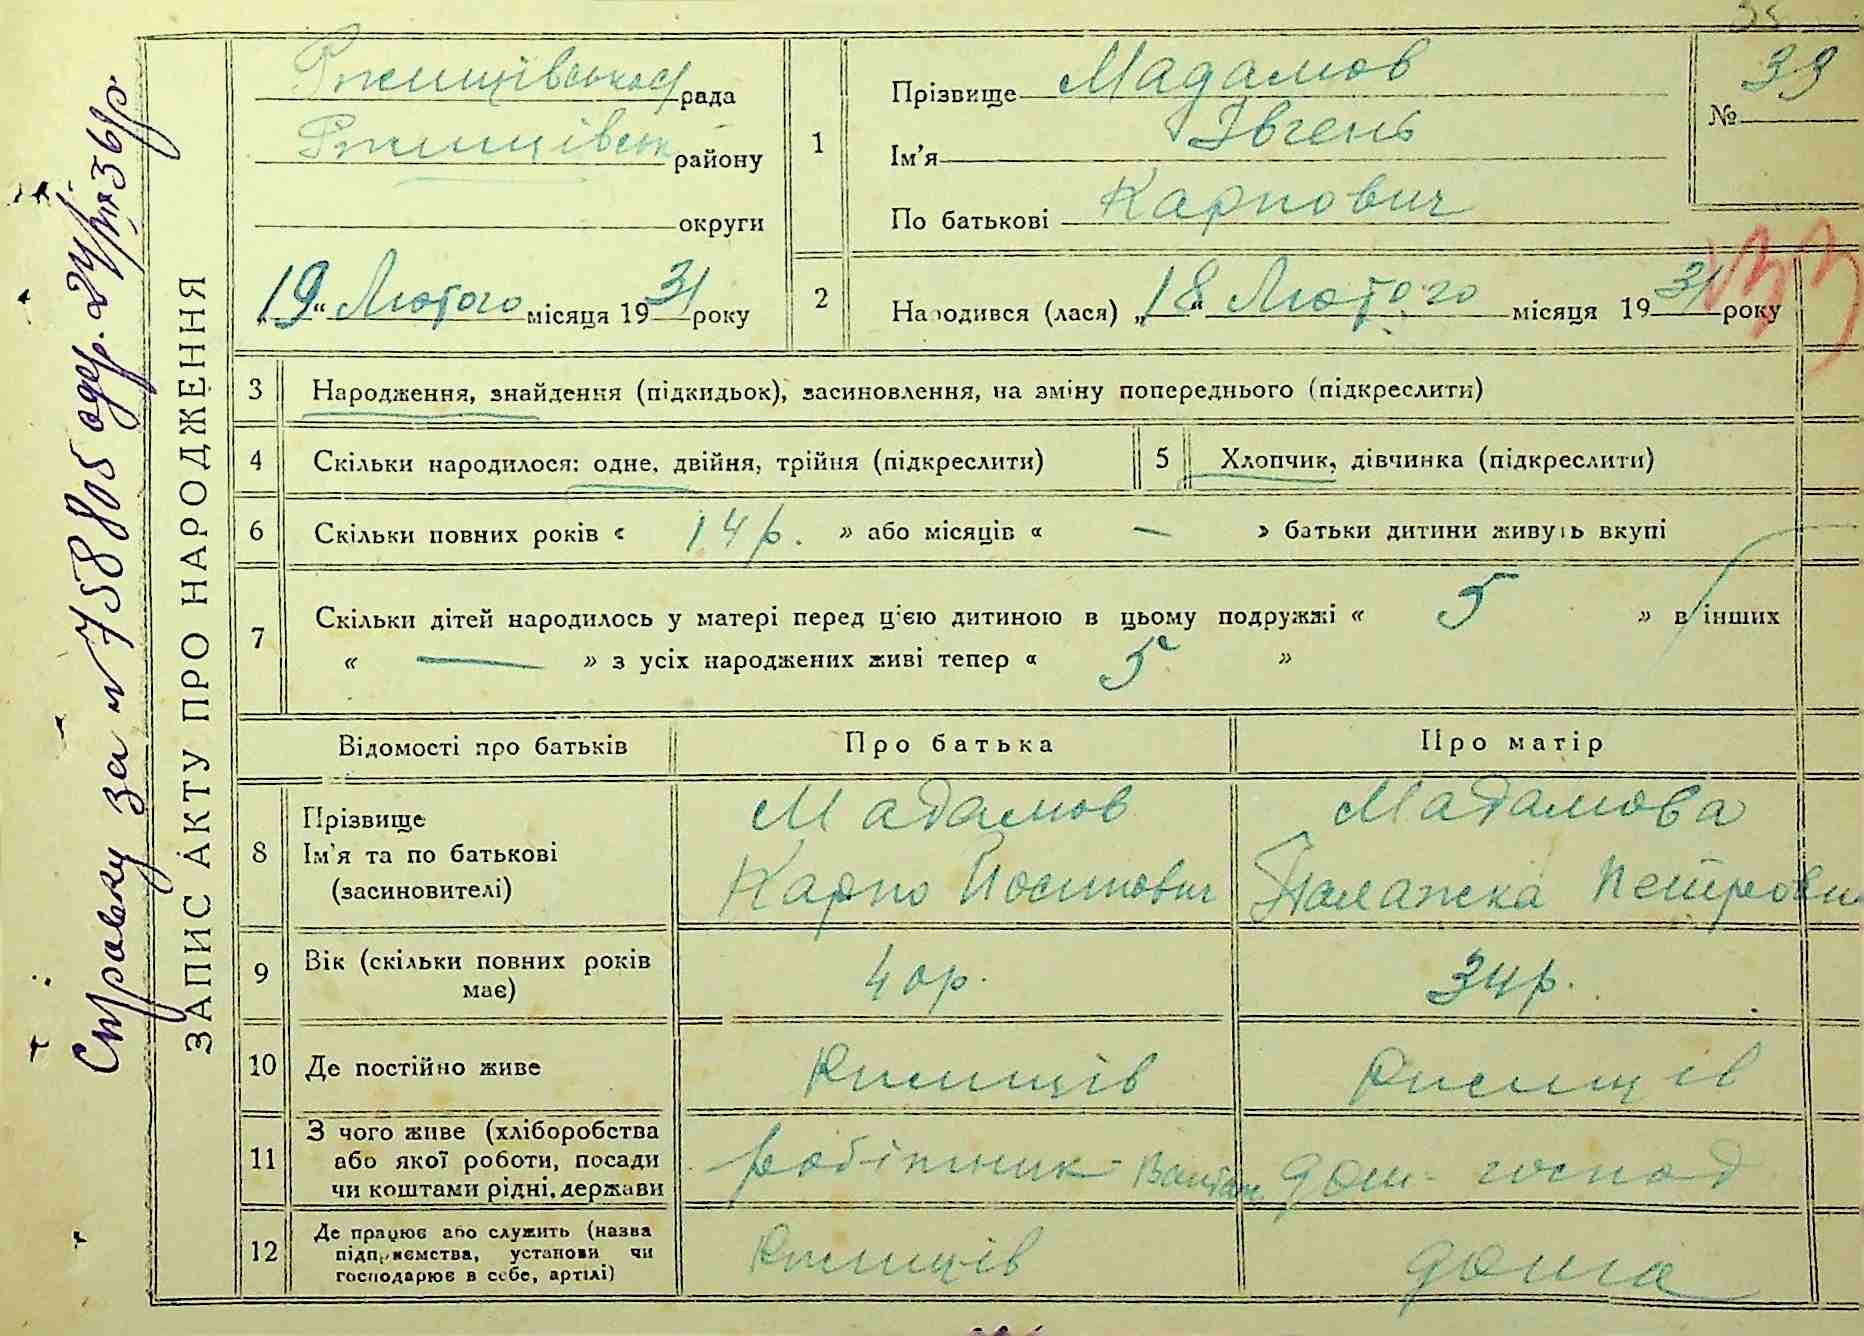 Справку за № 758805 одер. 24/VII 36 р
ЗАПИС АКТУ ПРО НАРОДЖЕННЯ
Ржищівська рада
Ржищівськ району
округи
„19“ Лютого місяця 1931 року
1
Прізвище Мадамов
Ім'я Івгень
По батькові Карпович
№ 39
2
Народився (лася) „18“ Лютого місяця 1931 року
3 Народження, знайдення (підкидьок), засиновлення, на зміну попереднього (підкреслити)
4 Скільки народилося: одне, двійня, трійня (підкреслити)
5 Хлопчик, дівчинка (підкреслити)
6 Скільки повних років « 14 р. » або місяців « — » батьки дитини живуть вкупі
7 Скільки дітей народилось у матері перед цією дитиною в цьому подружжі « 5 » в інших
« — » з усіх народжених живі тепер « 5 »
Відомості про батьків Про батька Про матір
8 Прізвище Мадамов Мадамова
Ім'я та по батькові
(засиновителі) Карпо Йосипович Палажка Петровн
9 Вік (скільки повних років має) 40 р. 34 р.
10 Де постійно живе Ржищів Ржищів
11 З чого живе (хліборобства
або якої роботи, посади
чи коштами рідні, держави робітник дом-господ
12 Де працює або служить (назва
підприємства, установи чи
господарює в себе, артілі) Ржищів дома